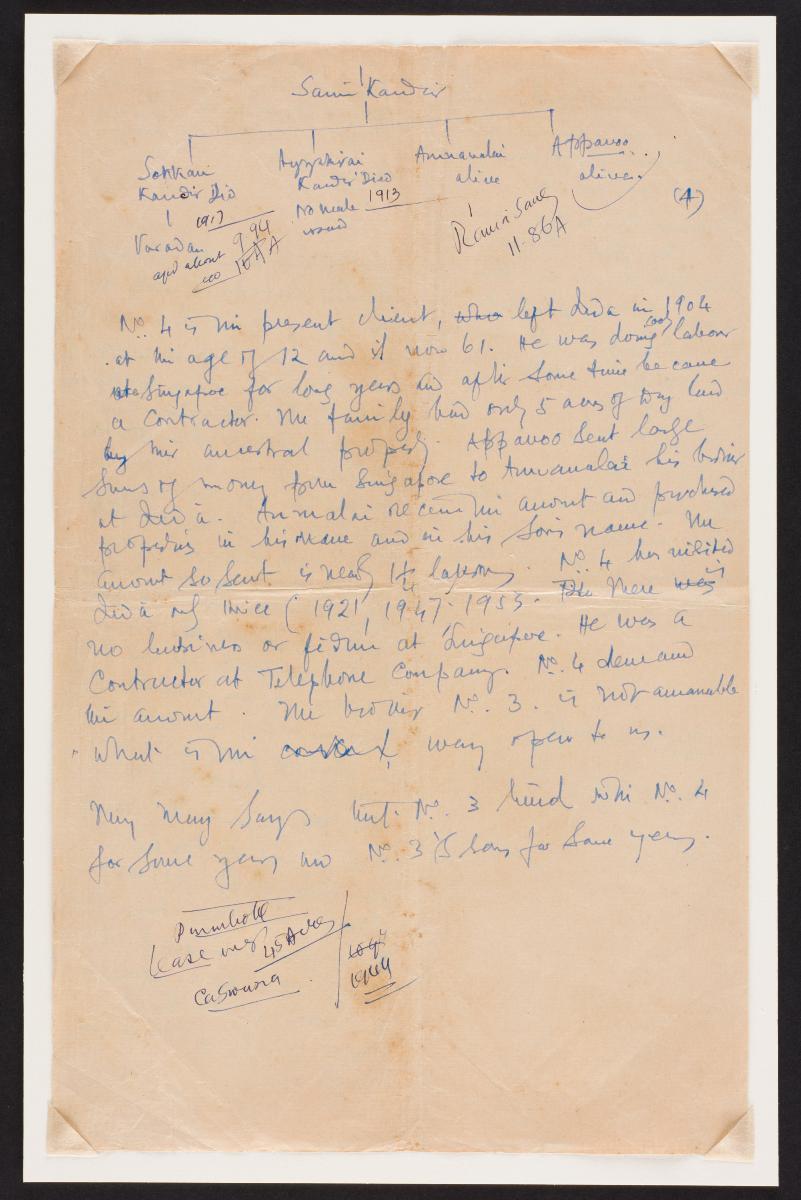 Sami Kandir
Sokkan
Kandir Died
1917
Varadan
aged about
9.94
Ayyakirai
Kandir Died
1913
No male
issue
Annamalai
alive
Ramasamy
11-86A
Appavoo
alive.
(4)
No. 4 is the present client, who left India in 1904
at the age of 12 and is now 61. He was doing cooly labour
at Singapore for long years and after some time became
a contractor. The family had only 5 acres of dry land
by their ancestral property. Appavoo sent large
sums of money from Singapore to Annamalai his brother
at India. Annamalai received the amount and purchased
properties in his name and in his son's name. The
amount so sent is nearly 1 1/4 lakhs. No. 4 has visited
India only thrice (1921, 1947, 1953. There was is
no business or firm at Singapore. He was a
Contractor at Telephone Company. No. 4 demand
the amount. The brother No. 3. is not amenable
What is the way open to us.
They may say that No. 3 lived with No. 4
for some years and No. 3's sons for some years.
Purambok
Lease over 45 Acres
Casurina
1944